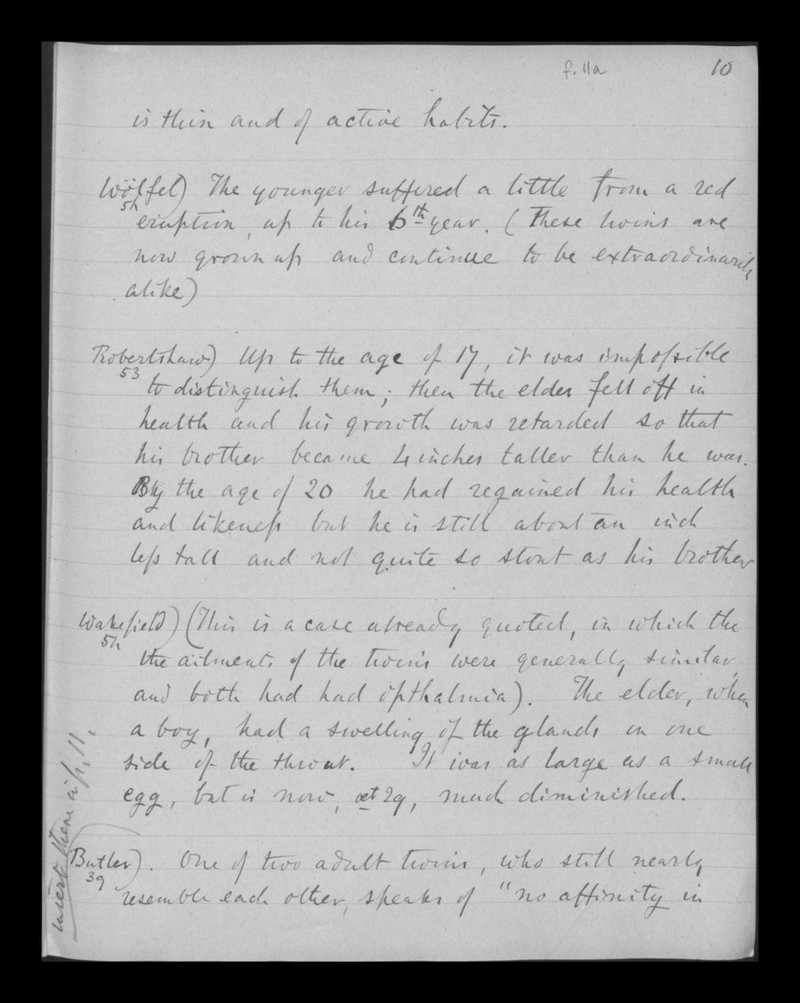 f.11a
10
is thin and of active habits.
Wölfel) The younger suffered a little from a red
5h
eruption, up to his 6th year. (These twins are
now grown up and continue to be extraordinarily
alike)
Robertshaw) Up to the age of 17, it was impossible
53
to distinguish them; then the elder fell off in
health and his growth was retarded so that
his brother became 4 inches taller than he was.
By the age of 20 he had regained his health
and likeness but he is still about an inch
less tall and not quite so stout as his brother
Wakefield) (This is a case already quoted, in which the
5h
the ailments of the twins were generally similar,
and both had had opthalmia). The elder, when
a boy, had a swelling of the glands on one
side of the throat. It was as large as a small
egg, but is now, æt 29, much diminished.
Butler). One of two adult twins, who still nearly
39
resemble each other, speaks of "no affinity in
insert them 11.